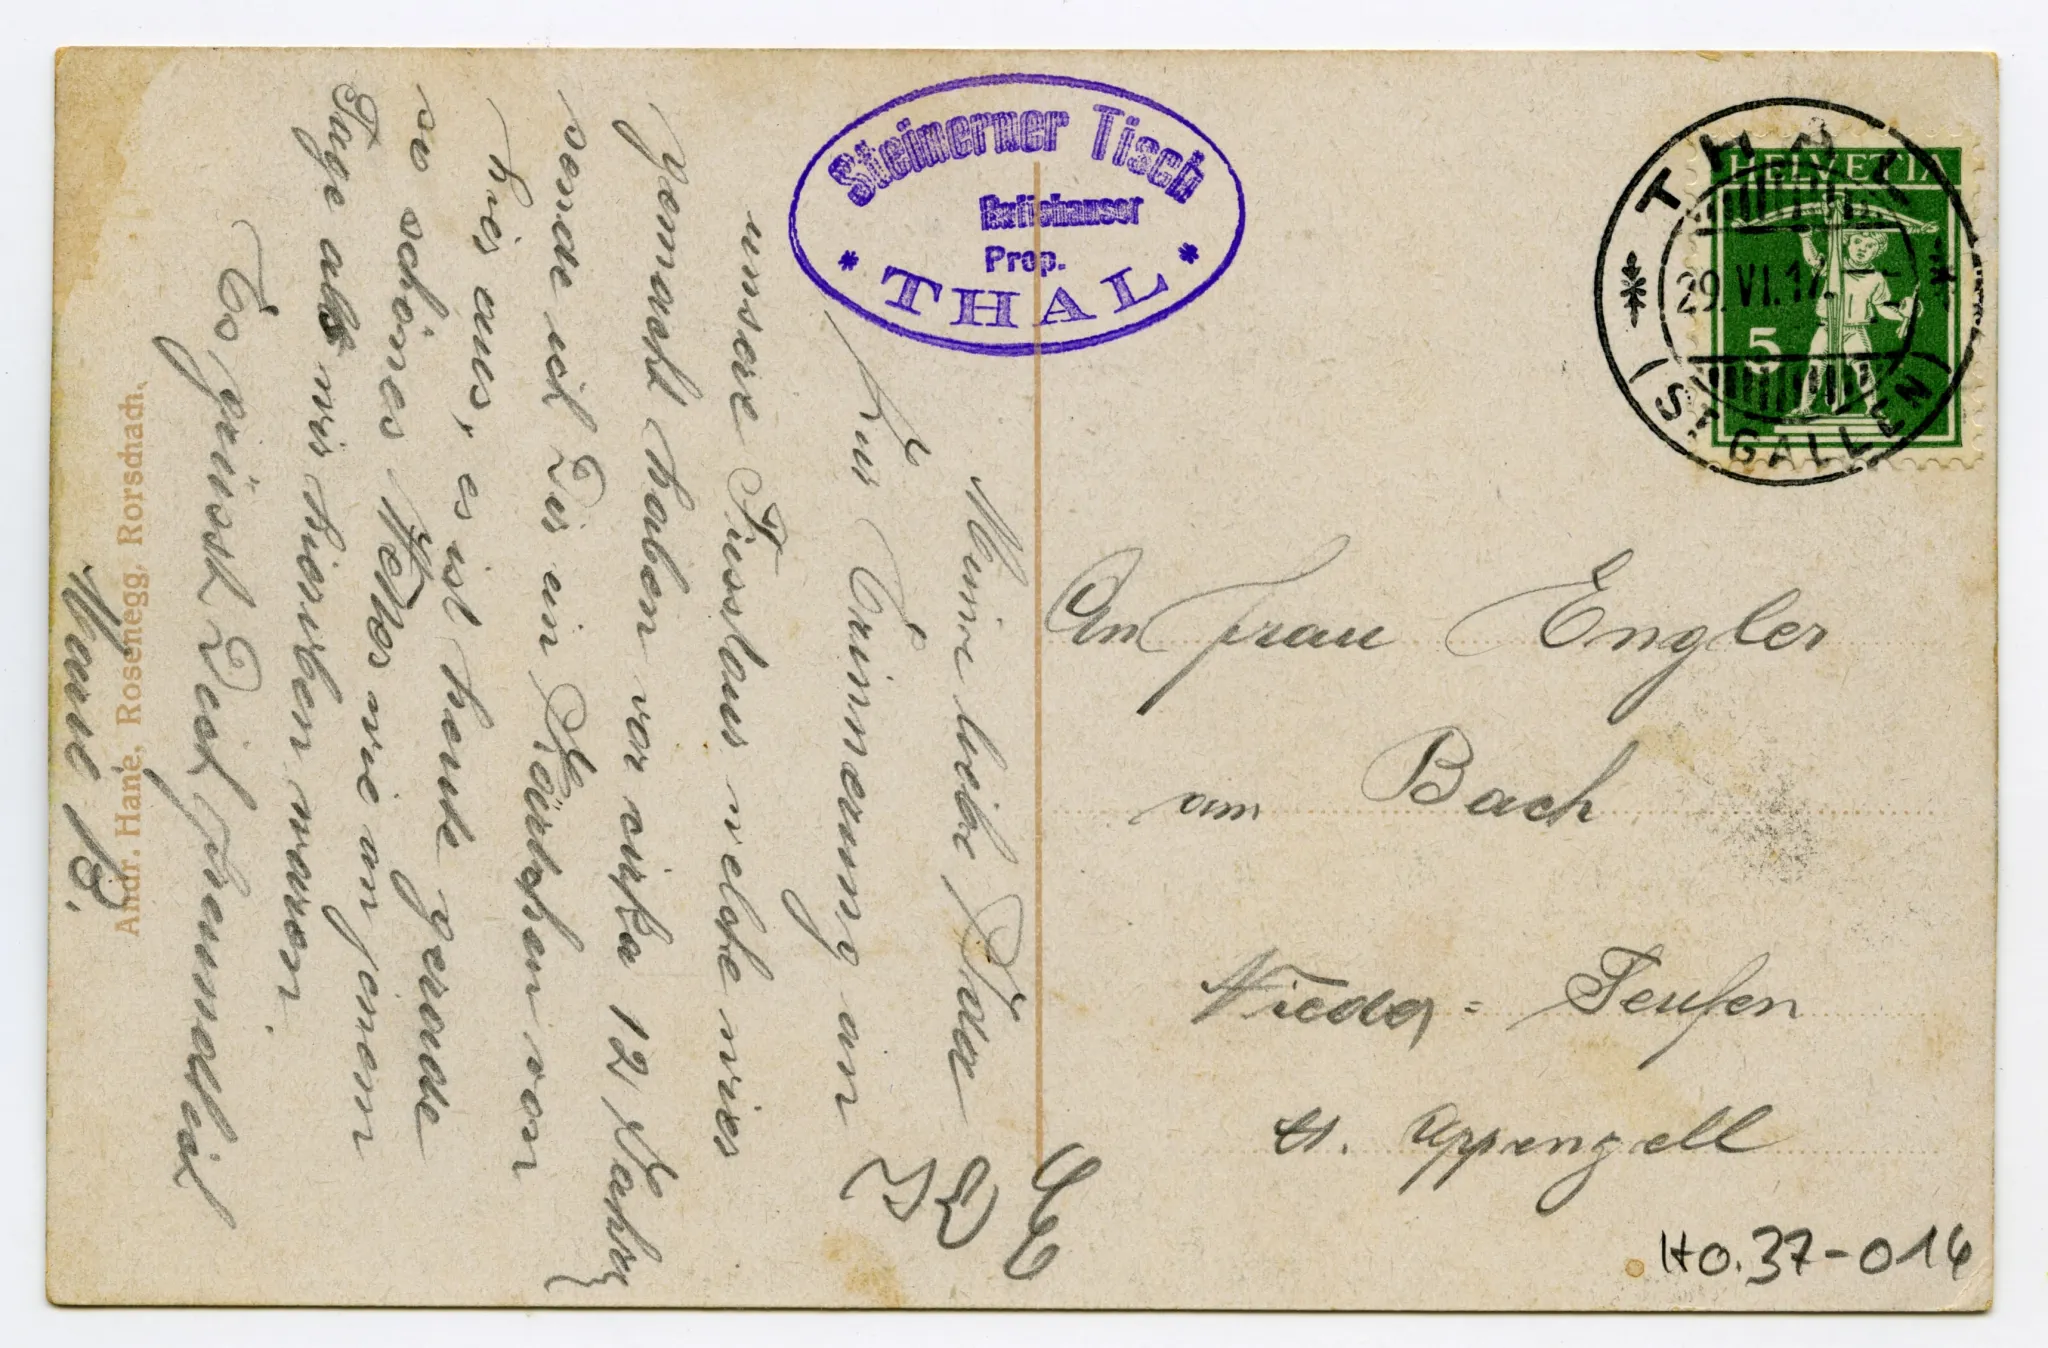 Meine liebe Ida
Zur Erinnerung an
unsere Fusstour welche wir
gemacht haben vor cirka 12 Jahren
sende ich Dir ein Kärtchen von
hier aus, es ist heute gerade
so schönes Wetter wie an jenem
Tage als wir hier oben waren.
Es grüsst Dich freundlich
Marie B.
Andr. Hane, Rosenegg, Rorschach.
Steinerner Tisch
Prop.
* THAL *
THAL
29.VI.17
(ST. GALLEN)
HELVETIA
5
An Frau Engler
am Bach
Nieder = Teufen
Kt. Appenzell
Ho.37-016